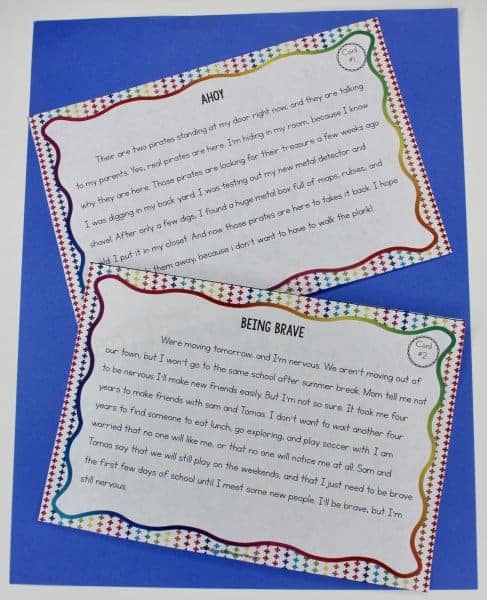 Card
#1
AHOY
Their are two pirates standing at my door right now, and they are talking
to my parents. Yes, real pirates are here. I'm hiding in my room, because I know
why they are here. Those pirates are looking for their treasure a few weeks ago
I was digging in my back yard. I was testing out my new metal detector and
shovel. After only a few digs, I found a huge metal box full of maps, rubies, and
I put it in my closet. And now those pirates are here to takes it back. I hope
them away, because i don't want to have to walk the plank!
Card
#2
BEING BRAVE
Were moving tomorrow, and I'm nervous. We aren't moving out of
our town, but I won't go to the same school after summer break. Mom tell me not
to be nervous I'll make new friends easily. But I'm not so sure. It took me four
years to make friends with sam and Tomas. I don't want to wait another four
years to find someone to eat lunch, go exploring, and play soccer with. I am
worried that no one will like me, or that no one will notice me at all. Sam and
Tomas say that we will still play on the weekends, and that I just need to be brave
the first few days of school until I meet some new people. I'll be brave, but I'm
still nervous.